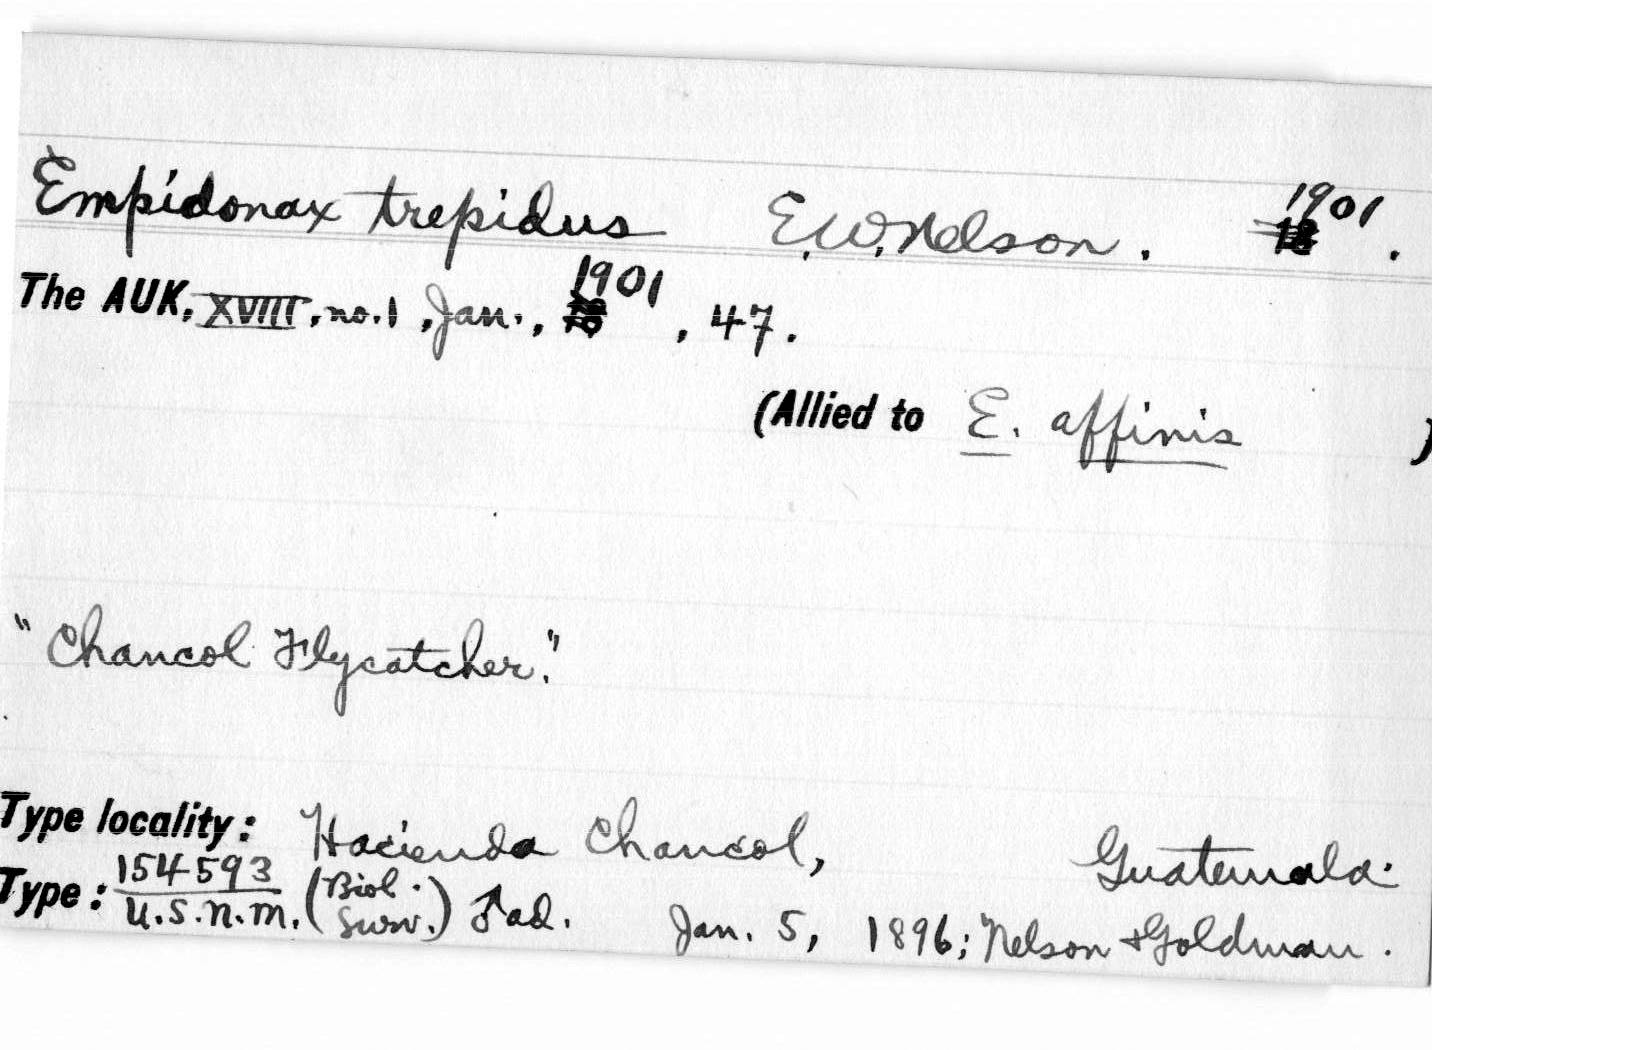 Empidonax trepidus E.W. Nelson. 1901.
The AUK, XVIII, no. 1, Jan., 1901, 47.
(Allied to E. affinis )
"Chancol Flycatcher."
Type locality: Hacienda Chancol, Guatemala.
Type: 154593 U.S.N.M. (Biol. Surv.) ♂ ad. Jan. 5, 1896; Nelson + Goldman.